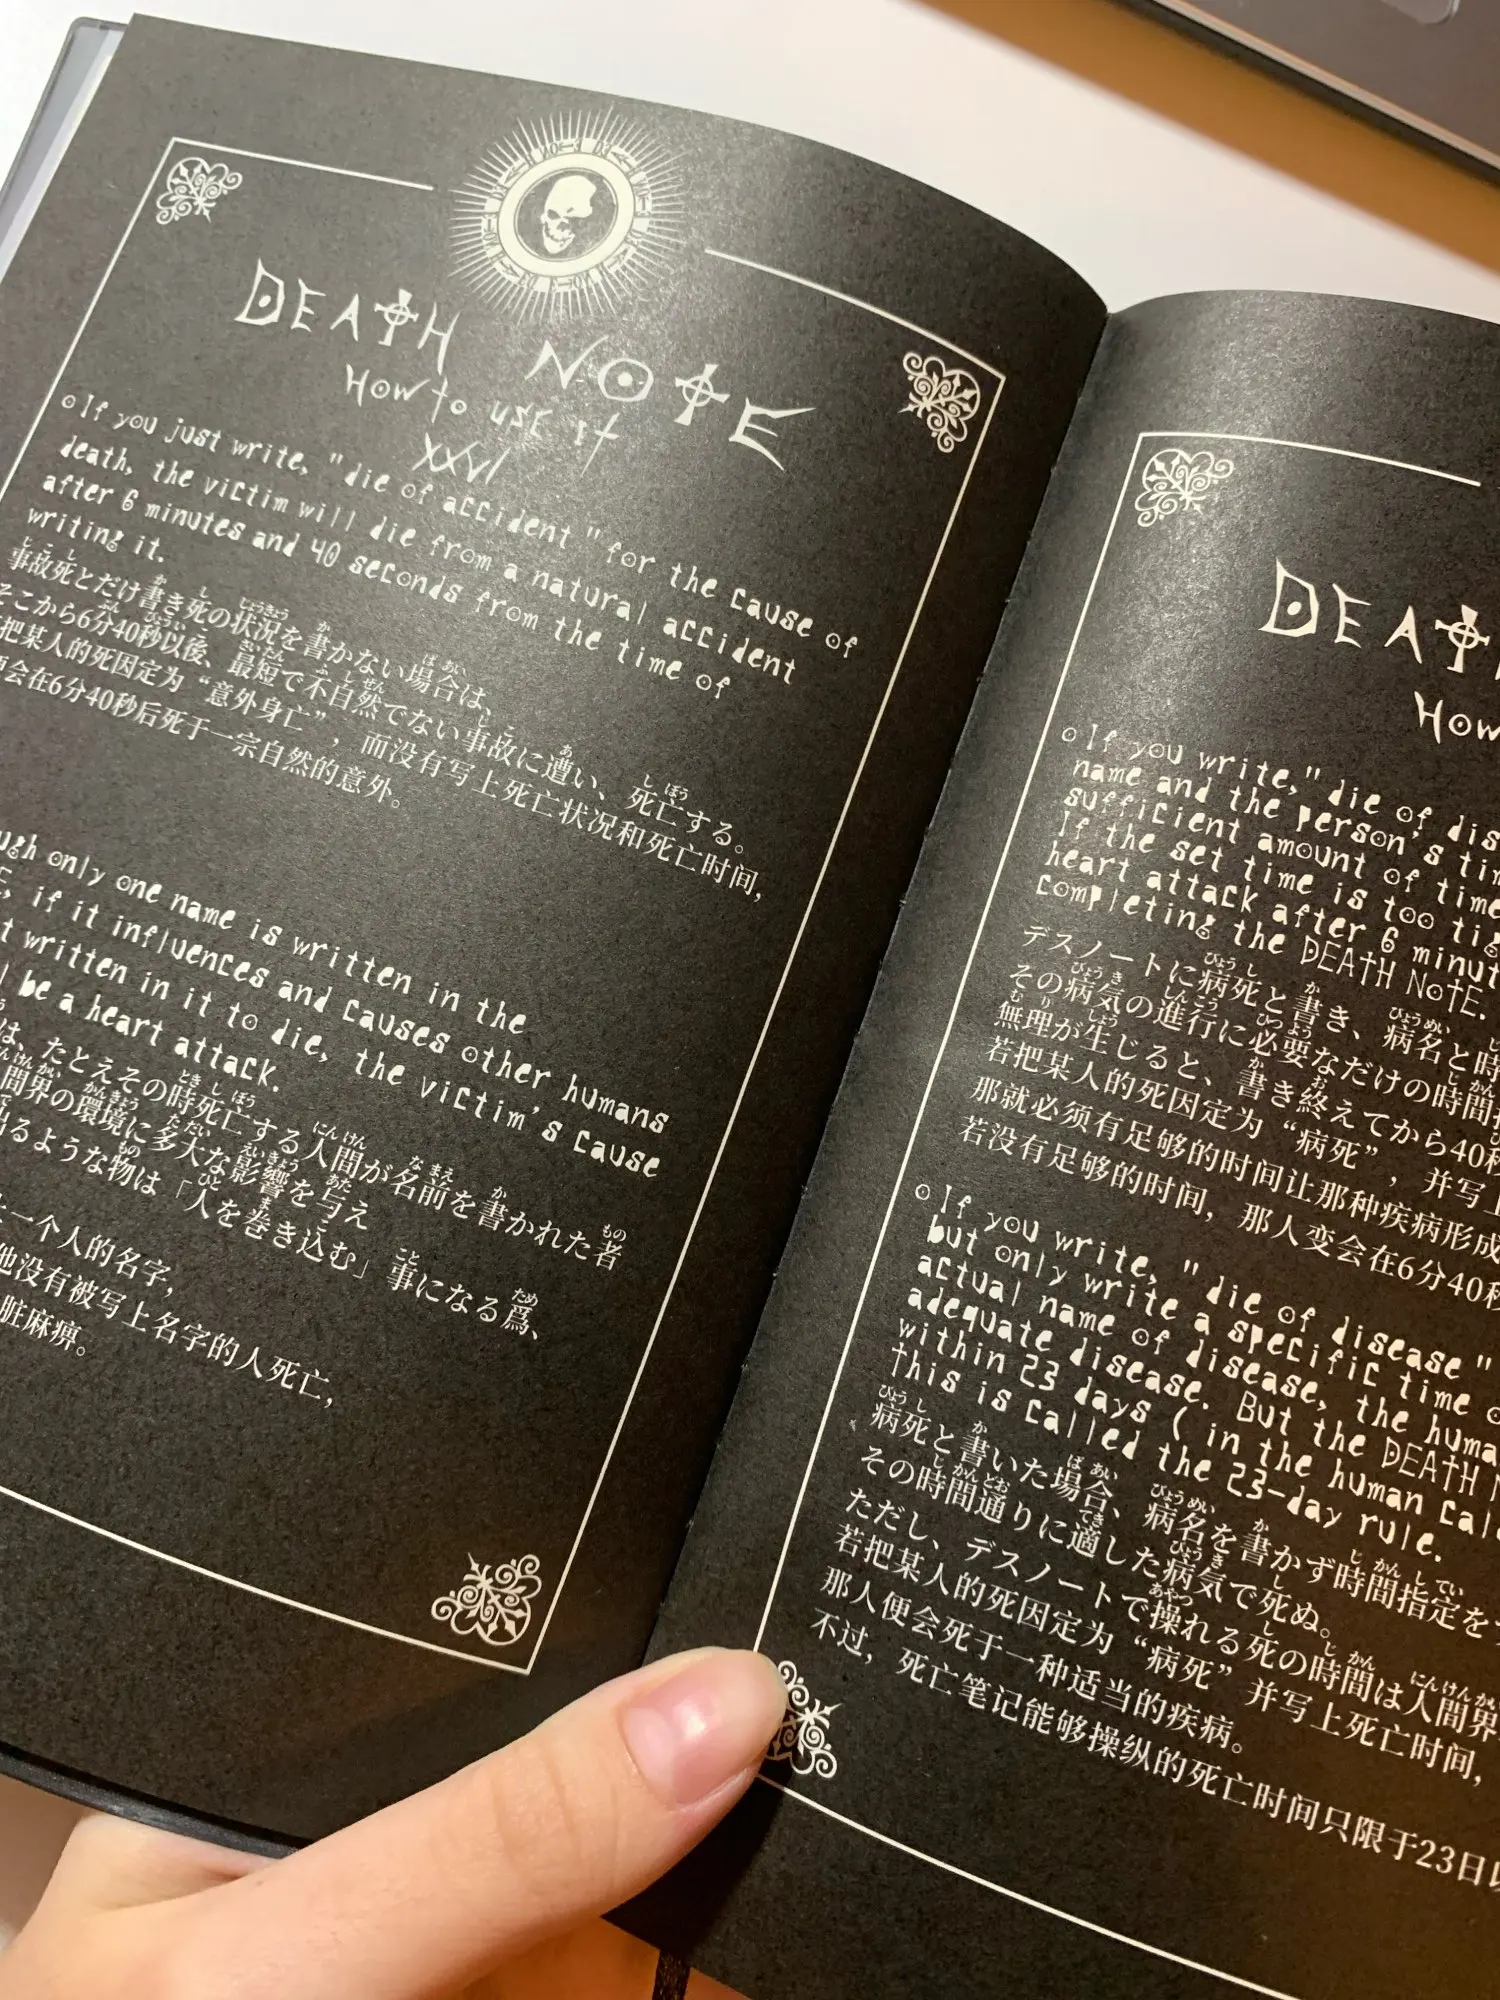 DEATH NOTE
How to use it
XXVI
If you just write, "die of accident" for the cause of
death, the victim will die from a natural accident
after 6 minutes and 40 seconds from the time of
writing it.
事故死とだけ書き死の状況を書かない場合は、
そこから6分40秒以後、最短で不自然でない事故に遭い、死亡する。
把某人的死因定为“意外身亡”，而没有写上死亡状况和死亡时间，
会在6分40秒后死于一宗自然的意外。
only one name is written in the
if it influences and causes other humans
written in it to die, the victim's cause
be a heart attack.
は、たとえその時死亡する人間が名前を書かれた者
間界の環境に多大な影響を与え
出るような物は「人を巻き込む」事になる爲、
一个人的名字，
他没有被写上名字的人死亡，
脏麻痹。
DEATH
How
If you write, "die of
name and the person's
sufficient amount of time
If the set time is too
heart attack after 6
completing the DEATH NOTE.
デスノートに病死と書き、病名と時
その病気の進行に必要なだけの時間
無理が生じると、書き終えてから40秒
若把某人的死因定为“病死”，并写上
那就必须有足够的时间让那种疾病形成
若没有足够的时间，那人变会在6分40秒
If you write, "die of disease"
but only write a specific time
actual name of disease, the
adequate disease. But the DEATH
within 23 days (in the human
this is called the 23-day rule.
病死と書いた場合、病名を書かず時間指定を
その時間通りに適した病気で死ぬ。
ただし、デスノートで操れる死の時間は人間界
若把某人的死因定为“病死”并写上死亡时间，
那人便会死于一种适当的疾病。
不过，死亡笔记能够操纵的死亡时间只限于23日